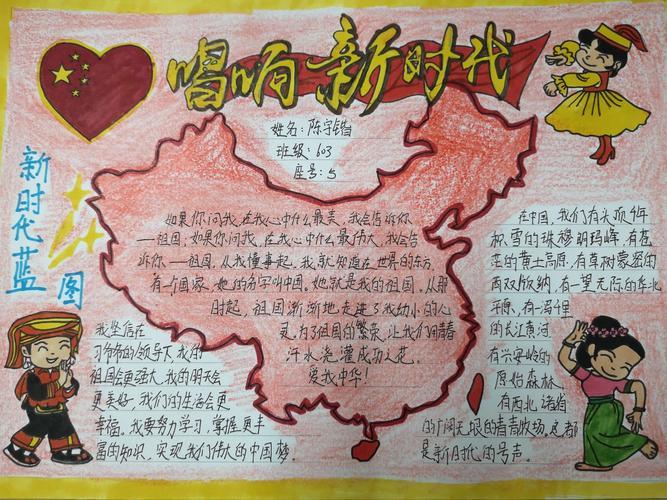 唱响新时代
姓名：陈宇锴
班级：603
座号：5
新时代蓝图
如果你问我，在我心中什么最美，我会告诉你
——祖国；如果你问我，在我心中什么最伟大，我会告
诉你——祖国。从我懂事起，我就知道在世界的东方
有一个国家，她的名字叫中国，她就是我的祖国。从那
时起，祖国渐渐地走进了我幼小的心
灵，为了祖国的繁荣，让我们用青春
汗水浇灌成功之花。
爱我中华！
我坚信在
习爷爷的领导下，我的
祖国会更强大，我的明天会
更美好，我们的生活会更
幸福。我要努力学习，掌握更丰
富的知识，实现我们伟大的中国梦。
在中国，我们有头顶千年
积雪的珠穆朗玛峰，有苍
茫的黄土高原，有草树蒙密的
西双版纳，有一望无际的华北
平原，有一泻千里
的长江黄河
有兴安岭的
原始森林
有西北诸省
的广阔无垠的春青牧场。这都
是新时代的号声。